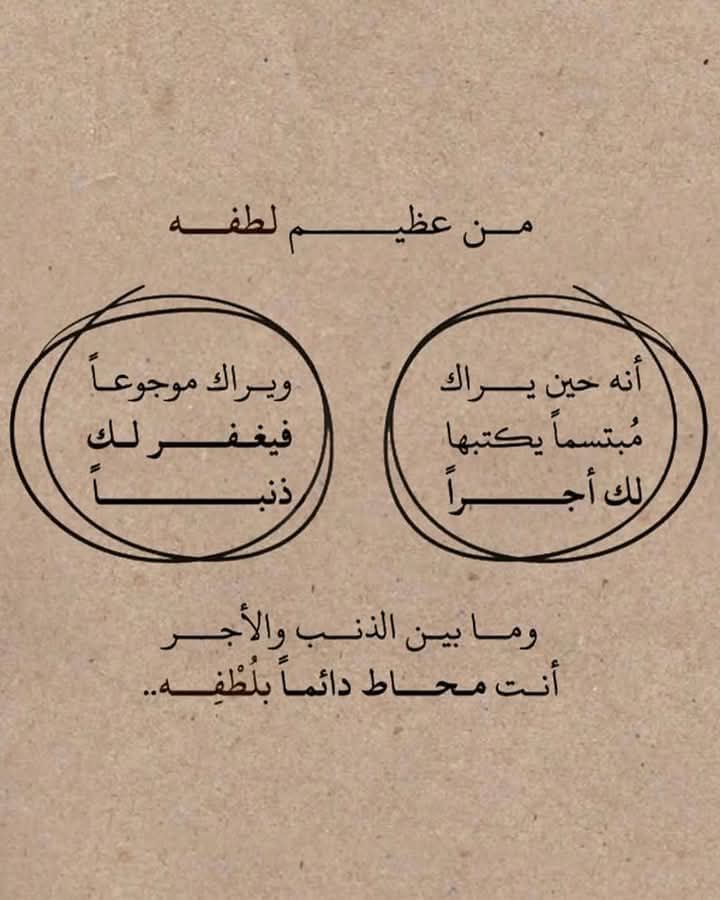 من عظيم لطفه
أنه حين يراك
مُبتسماً يكتبها
لك أجراً
ويراك موجوعاً
فيغفر لك
ذنباً
وما بين الذنب والأجر
أنت محاط دائماً بلُطْفِه..